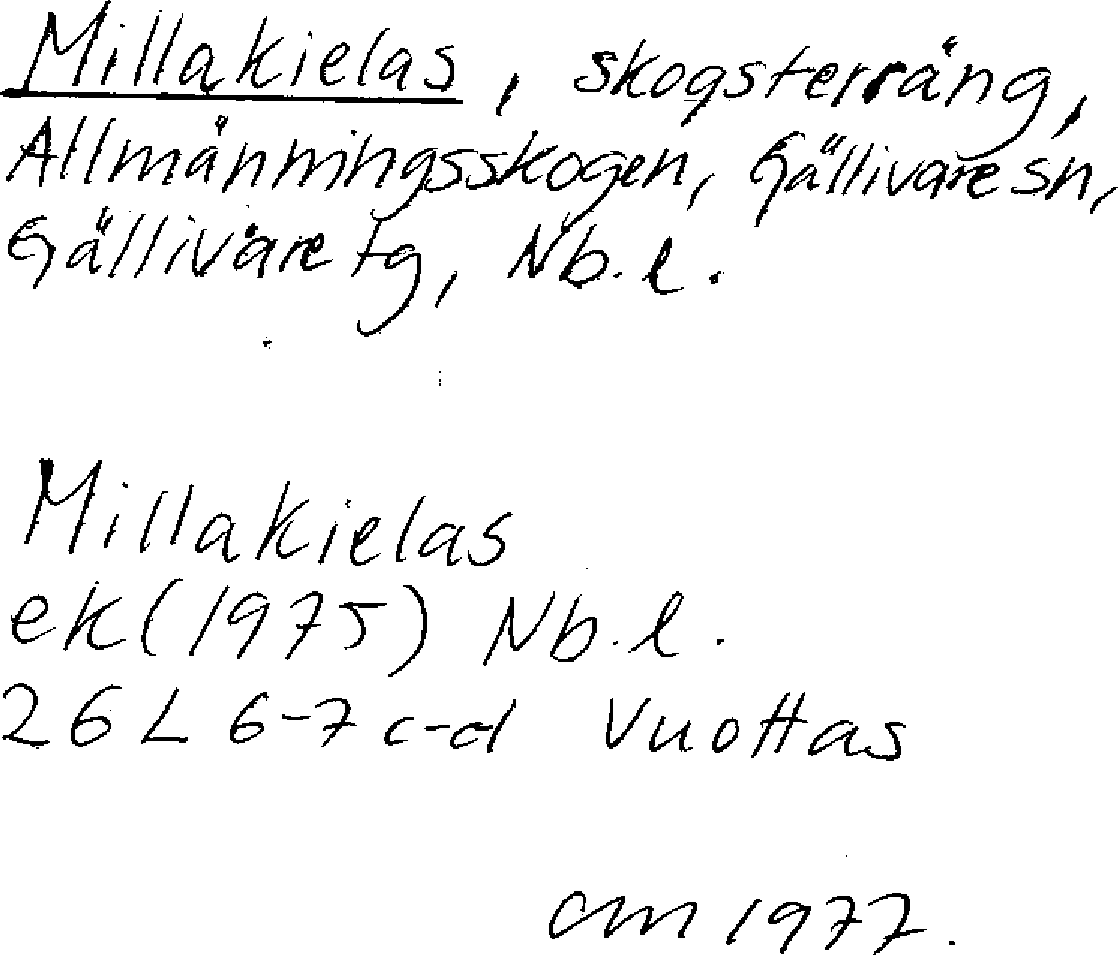 Millakielas, skogsterräng,
Allmänningsskogen, Gällivare sn,
Gällivare tg, Nb. l.
Millakielas
ek (1975) Nb. l.
26 L 6-7 c-d Vuottas
CM 1977.